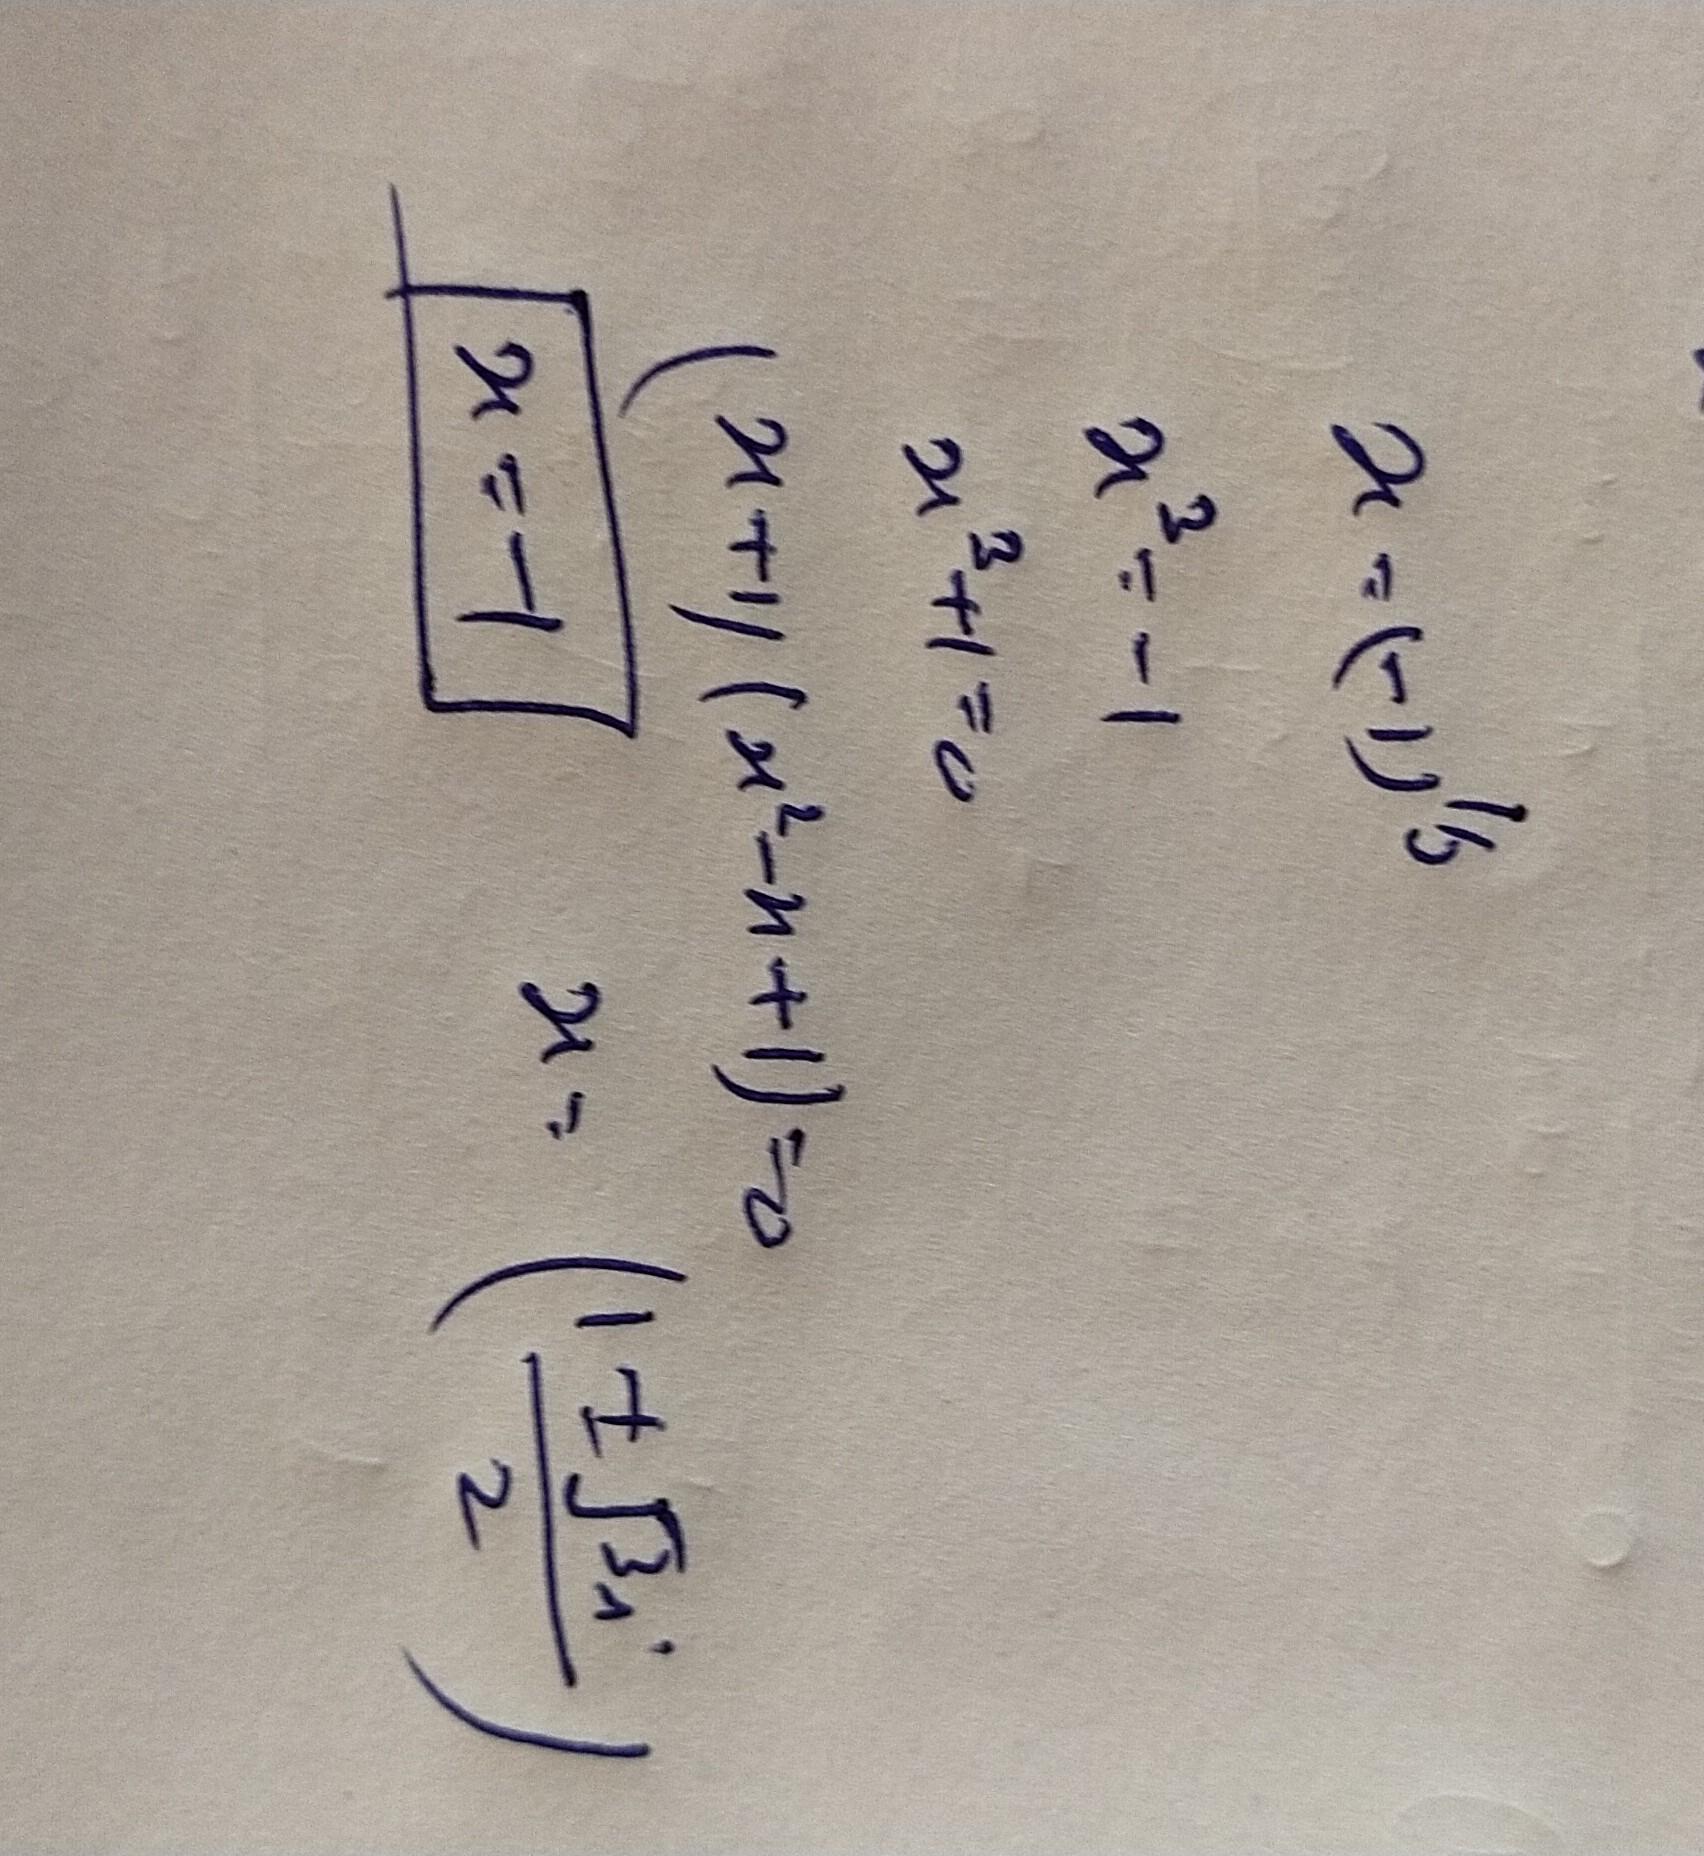 x = (-1)^{1/3}
x^3 = -1
x^3 + 1 = 0
(x+1)(x^2-x+1) = 0
x = -1    x = (\frac{1 ± √3 i}{2})